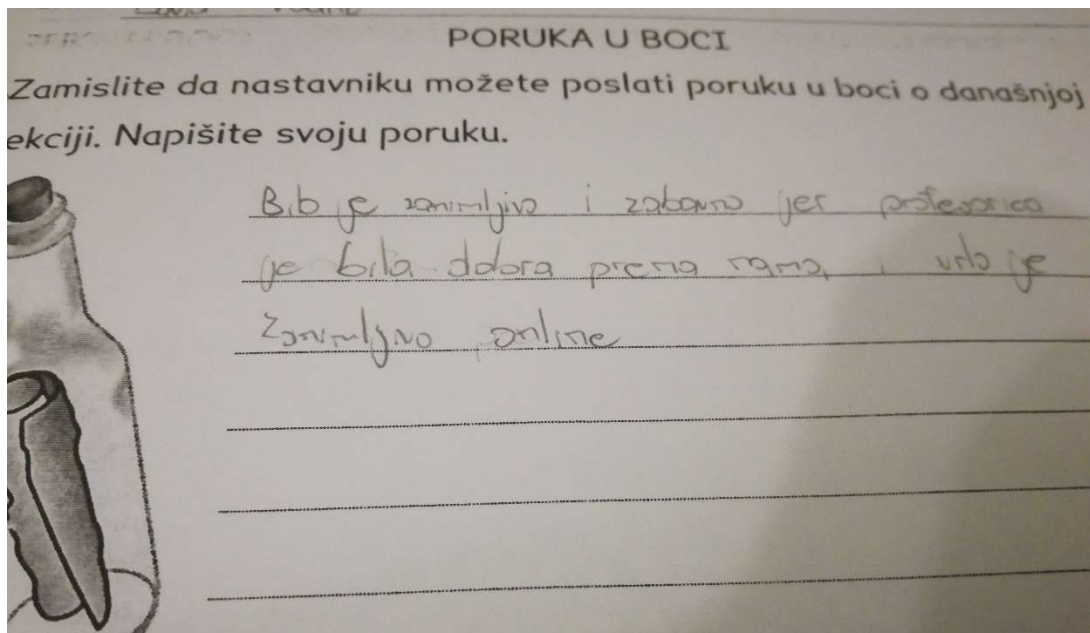 PORUKA U BOCI
Zamislite da nastavniku možete poslati poruku u boci o današnjoj
ekciji. Napišite svoju poruku.
Bilo je zanimljivo i zabavno jer profesorica
je bila dobra prema nama, i vrlo je
zanimljivo online